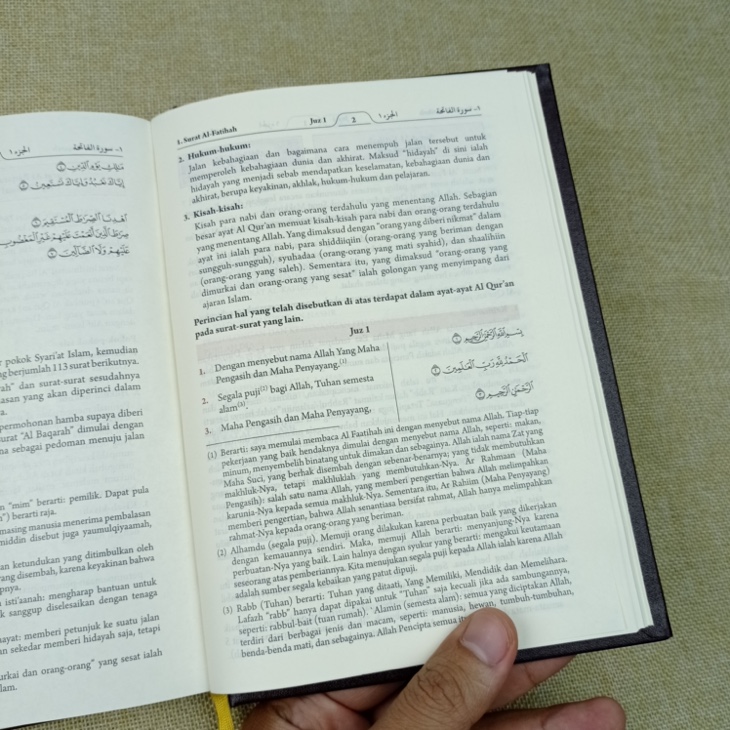 ١- سورة الفاتحة
الجزء ١
مَـٰلِكِ يَوْمِ ٱلدِّينِ ④
إِيَّاكَ نَعْبُدُ وَإِيَّاكَ نَسْتَعِينُ ⑤
ٱهْدِنَا ٱلصِّرَٰطَ ٱلْمُسْتَقِيمَ ⑥
صِرَٰطَ ٱلَّذِينَ أَنْعَمْتَ عَلَيْهِمْ غَيْرِ ٱلْمَغْضُوبِ
عَلَيْهِمْ وَلَا ٱلضَّآلِّينَ ⑦
pokok Syari'at Islam, kemudian
berjumlah 113 surat berikutnya.
dan surat-surat sesudahnya
yang akan diperinci dalam
permohonan hamba supaya diberi
"Al Baqarah" dimulai dengan
sebagai pedoman menuju jalan
"mim" berarti: pemilik. Dapat pula
berarti raja.
masing manusia menerima pembalasan
disebut juga yaumulqiyaamah,
ketundukan yang ditimbulkan oleh
disembah, karena keyakinan bahwa
isti'aanah: mengharap bantuan untuk
sanggup diselesaikan dengan tenaga
memberi petunjuk ke suatu jalan
sekedar memberi hidayah saja, tetapi
dan orang-orang" yang sesat ialah
1. Surat Al-Fatihah
Juz 1
2
الجزء ١
١- سورة الفاتحة
2. Hukum-hukum:
Jalan kebahagiaan dan bagaimana cara menempuh jalan tersebut untuk
memperoleh kebahagiaan dunia dan akhirat. Maksud "hidayah" di sini ialah
hidayah yang menjadi sebab mendapatkan keselamatan, kebahagiaan dunia dan
akhirat, berupa keyakinan, akhlak, hukum-hukum dan pelajaran.
3. Kisah-kisah:
Kisah para nabi dan orang-orang terdahulu yang menentang Allah. Sebagian
besar ayat Al Qur'an memuat kisah-kisah para nabi dan orang-orang terdahulu
yang menentang Allah. Yang dimaksud dengan "orang yang diberi nikmat" dalam
ayat ini ialah para nabi, para shiddiiqiin (orang-orang yang beriman dengan
sungguh-sungguh), syuhadaa (orang-orang yang mati syahid), dan shaalihiin
(orang-orang yang saleh). Sementara itu, yang dimaksud "orang-orang yang
dimurkai dan orang-orang yang sesat" ialah golongan yang menyimpang dari
ajaran Islam.
Perincian hal yang telah disebutkan di atas terdapat dalam ayat-ayat Al Qur'an
pada surat-surat yang lain.
Juz 1
1. Dengan menyebut nama Allah Yang Maha
Pengasih dan Maha Penyayang.(1)
بِسْمِ ٱللَّهِ ٱلرَّحْمَـٰنِ ٱلرَّحِيمِ ①
2. Segala puji(2) bagi Allah, Tuhan semesta
alam(3).
ٱلْحَمْدُ لِلَّهِ رَبِّ ٱلْعَـٰلَمِينَ ②
3. Maha Pengasih dan Maha Penyayang,
ٱلرَّحْمَـٰنِ ٱلرَّحِيمِ ③
(1) Berarti: saya memulai membaca Al Faatihah ini dengan menyebut nama Allah. Tiap-tiap
pekerjaan yang baik hendaknya dimulai dengan menyebut nama Allah, seperti: makan,
minum, menyembelih binatang untuk dimakan dan sebagainya. Allah ialah nama Zat yang
Maha Suci, yang berhak disembah dengan sebenar-benarnya; yang tidak membutuhkan
makhluk-Nya, tetapi makhluklah yang membutuhkan-Nya. Ar Rahmaan (Maha
Pengasih): salah satu nama Allah, yang memberi pengertian bahwa Allah melimpahkan
karunia-Nya kepada semua makhluk-Nya. Sementara itu, Ar Rahiim (Maha Penyayang)
memberi pengertian, bahwa Allah senantiasa bersifat rahmat, Allah hanya melimpahkan
rahmat-Nya kepada orang-orang yang beriman.
(2) Alhamdu (segala puji). Memuji orang dilakukan karena perbuatan baik yang dikerjakan
dengan kemauannya sendiri. Maka, memuji Allah berarti: menyanjung-Nya karena
perbuatan-Nya yang baik. Lain halnya dengan syukur yang berarti: mengakui keutamaan
seseorang atas pemberiannya. Kita menujukan segala puji kepada Allah ialah karena Allah
adalah sumber segala kebaikan yang patut dipuji.
(3) Rabb (Tuhan) berarti: Tuhan yang ditaati, Yang Memiliki, Mendidik dan Memelihara.
Lafazh "rabb" hanya dapat dipakai untuk "Tuhan" saja kecuali jika ada sambungannya,
seperti: rabbul-bait (tuan rumah). `Alamin (semesta alam): semua yang diciptakan Allah,
terdiri dari berbagai jenis dan macam, seperti: manusia, hewan, tumbuh-tumbuhan,
benda-benda mati, dan sebagainya. Allah Pencipta semua